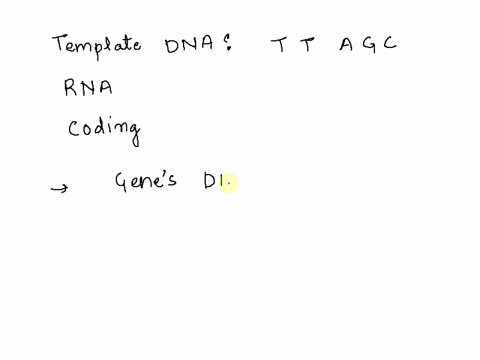 Template DNA: T T A G C
RNA
Coding
→ Gene's DI